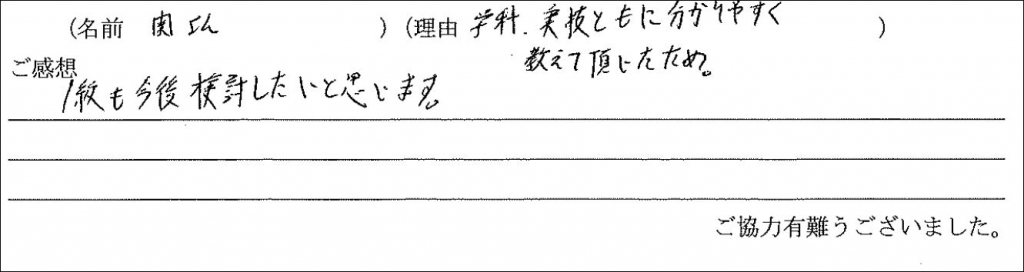 (名前 関さん ) (理由 学科、実技ともに分かりやすく )
教えて頂いたため。
ご感想
1級も今後検討したいと思います。
ご協力有難うございました。